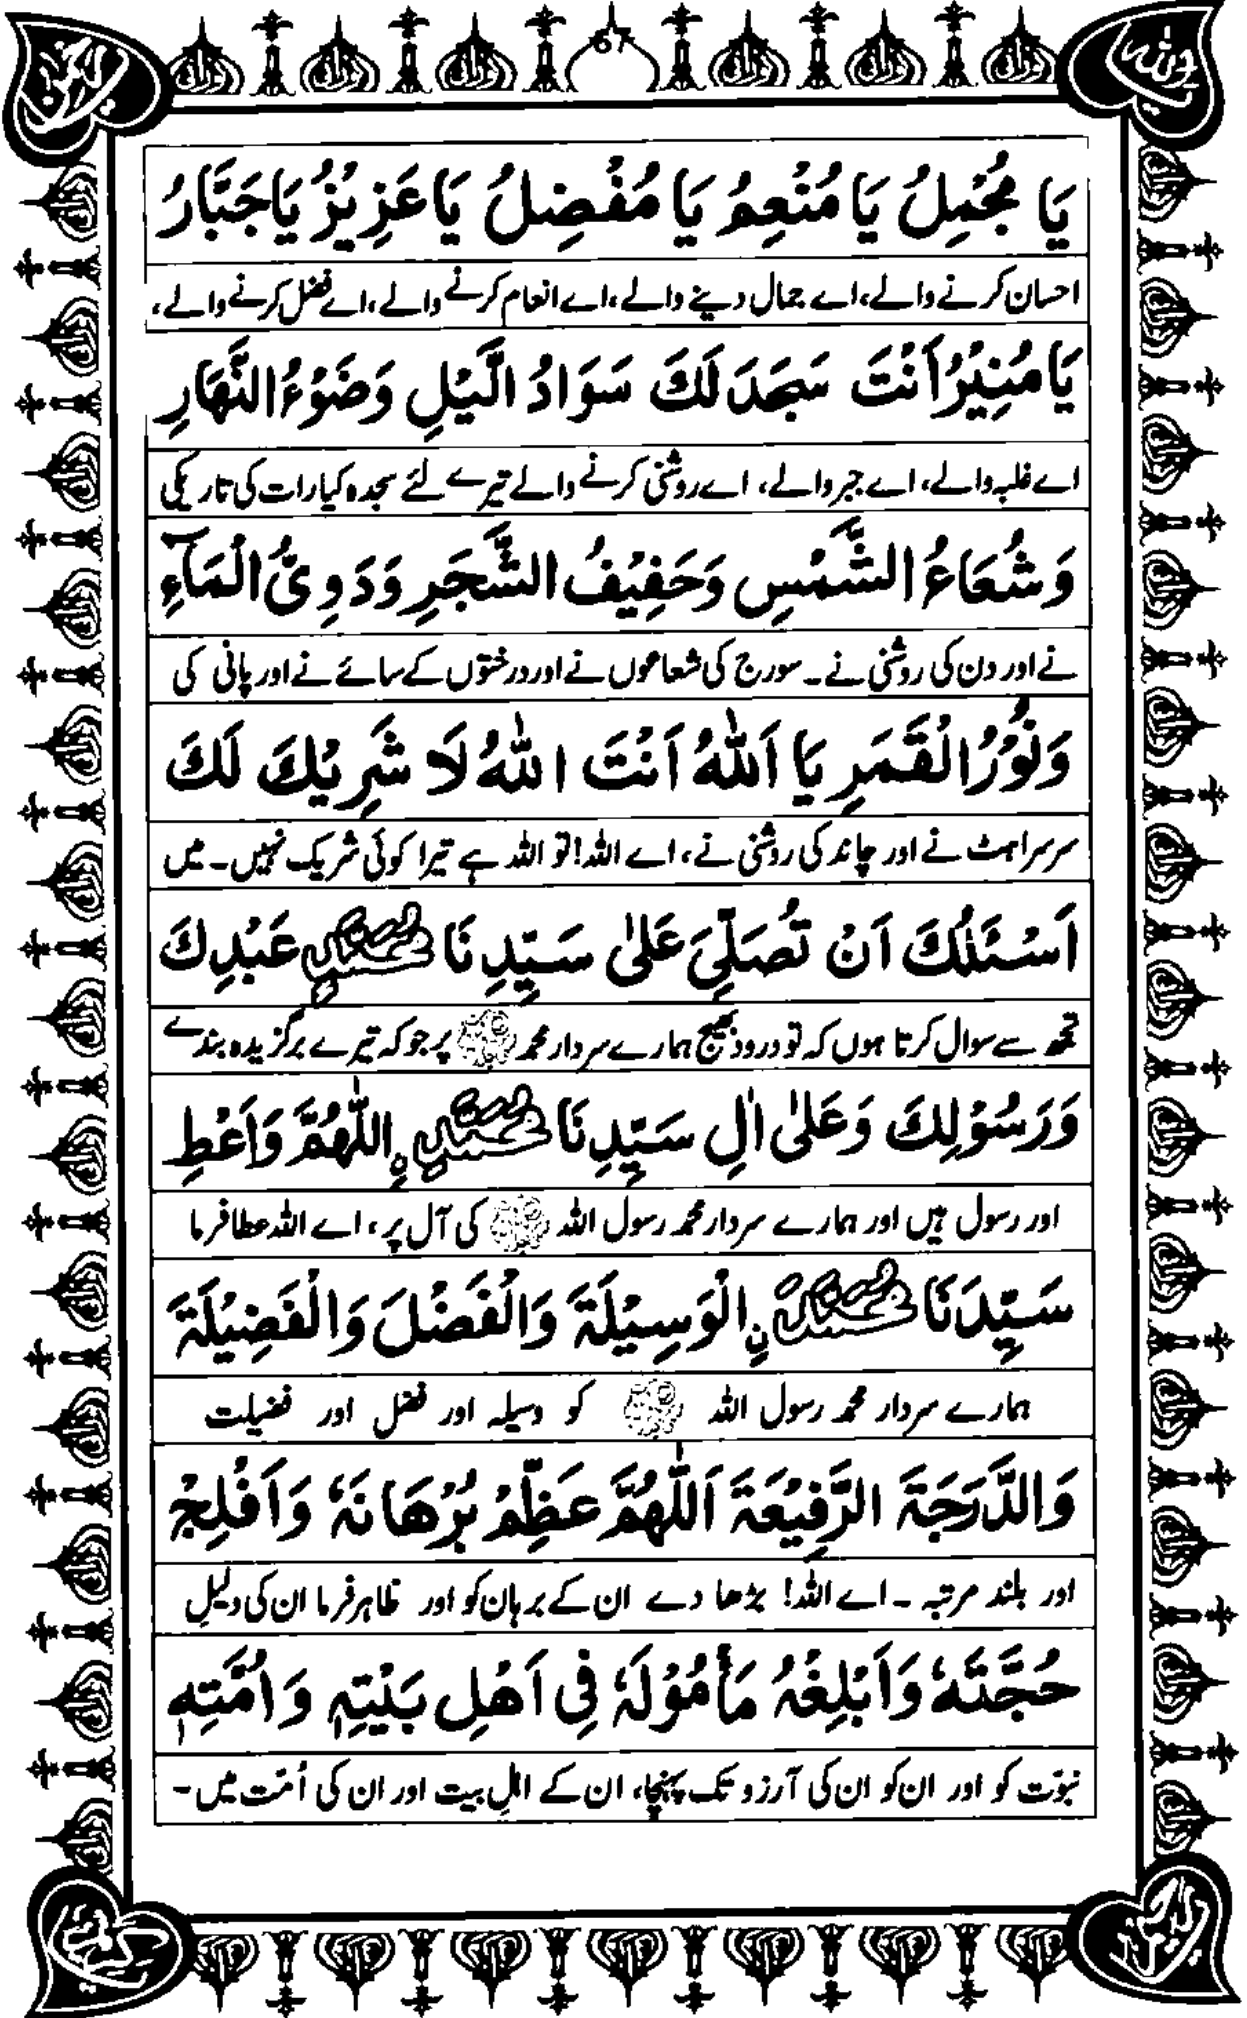 67
يَا مُجْمِلُ يَا مُنْعِمُ يَا مُفْضِلُ يَا عَزِيْزُ يَا جَبَّارُ
احسان کرنے والے، اے جمال دینے والے، اے انعام کرنے والے، اے فضل کرنے والے،
يَا مُنِيْرُ اَنْتَ سَجَدَ لَكَ سَوَادُ الَّيْلِ وَضَوْءُ النَّهَارِ
اے غلبہ والے، اے جبر والے، اے روشنی کرنے والے تیرے لئے سجدہ کیا رات کی تاریکی
وَشُعَاءُ الشَّمْسِ وَحَفِيْفُ الشَّجَرِ وَدَوِيُّ الْمَآءِ
نے اور دن کی روشنی نے۔ سورج کی شعاعوں نے اور درختوں کے سائے نے اور پانی کی
وَنُوْرُ الْقَمَرِ يَا اَللّٰهُ اَنْتَ اللّٰهُ لَا شَرِيْكَ لَكَ
سرسراہٹ نے اور چاند کی روشنی نے، اے اللہ! تو اللہ ہے تیرا کوئی شریک نہیں۔ میں
اَسْئَلُكَ اَنْ تُصَلِّيَ عَلٰى سَيِّدِنَا مُحَمَّدٍ عَبْدِكَ
تجھ سے سوال کرتا ہوں کہ تو درود بھیج ہمارے سردار محمد ﷺ پر جو کہ تیرے برگزیدہ بندے
وَرَسُوْلِكَ وَعَلٰى اٰلِ سَيِّدِنَا مُحَمَّدٍ ۚ اللّٰهُمَّ وَاَعْطِ
اور رسول ہیں اور ہمارے سردار محمد رسول اللہ ﷺ کی آل پر، اے اللہ عطا فرما
سَيِّدَنَا مُحَمَّدَ نِ الْوَسِيْلَةَ وَالْفَضْلَ وَالْفَضِيْلَةَ
ہمارے سردار محمد رسول اللہ ﷺ کو وسیلہ اور فضل اور فضیلت
وَالدَّرَجَةَ الرَّفِيْعَةَ اَللّٰهُمَّ عَظِّمْ بُرْهَانَهٗ وَاَفْلِجْ
اور بلند مرتبہ ۔ اے اللہ! بڑھا دے ان کے برہان کو اور ظاہر فرما ان کی دلیلِ
حُجَّتَهٗ وَاَبْلِغْهُ مَأْمُوْلَهٗ فِى اَهْلِ بَيْتِهٖ وَاُمَّتِهٖ
نبوّت کو اور ان کو ان کی آرزو تک پہنچا، ان کے اہلِ بیت اور ان کی اُمّت میں۔